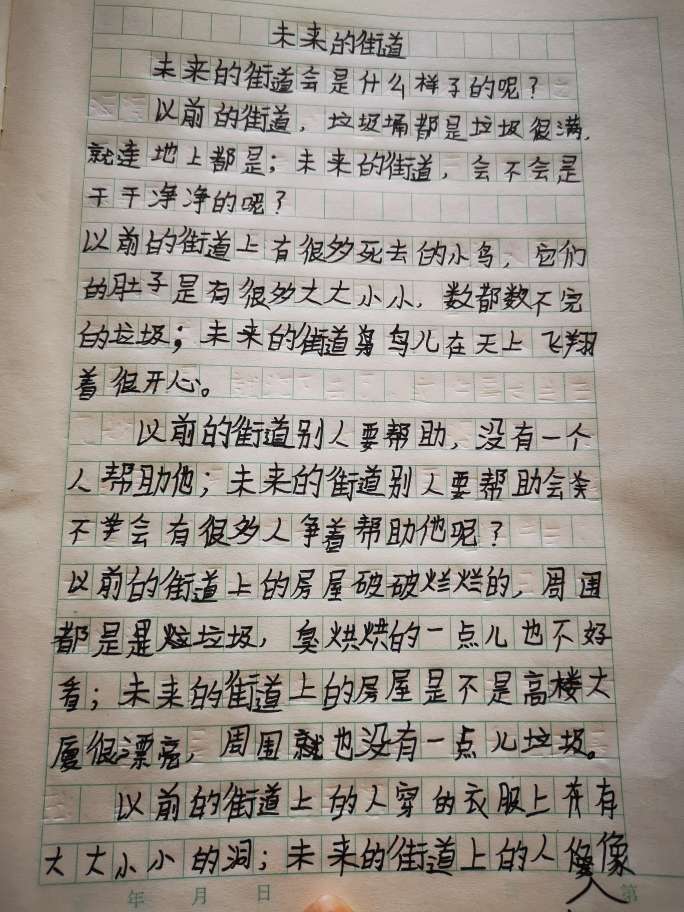 未来的街道
未来的街道会是什么样子的呢？
以前的街道，垃圾埇都是垃圾很满，
就连地上都是；未来的街道，会不会是
干干净净的呢？
以前的街道上有很多死去的小鸟，它们
的肚子是有很多大大小小，数都数不完
的垃圾；未来的街道鸟儿在天上飞翔
着很开心。
以前的街道别人要帮助，没有一个
人帮助他；未来的街道别人要帮助会
不会有很多人争着帮助他呢？
以前的街道上的房屋破破烂烂的，周围
都是是垃圾，臭烘烘的一点儿也不好
看；未来的街道上的房屋是不是高楼大
厦很漂亮，周围就也没有一点儿垃圾。
以前的街道上的人穿的衣服上有
大大小小的洞；未来的街道上的人像
人
年 月 日 第